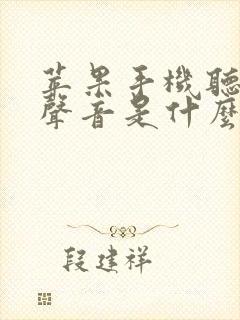 蘋果手機聽
聲音是什麼
段建祥